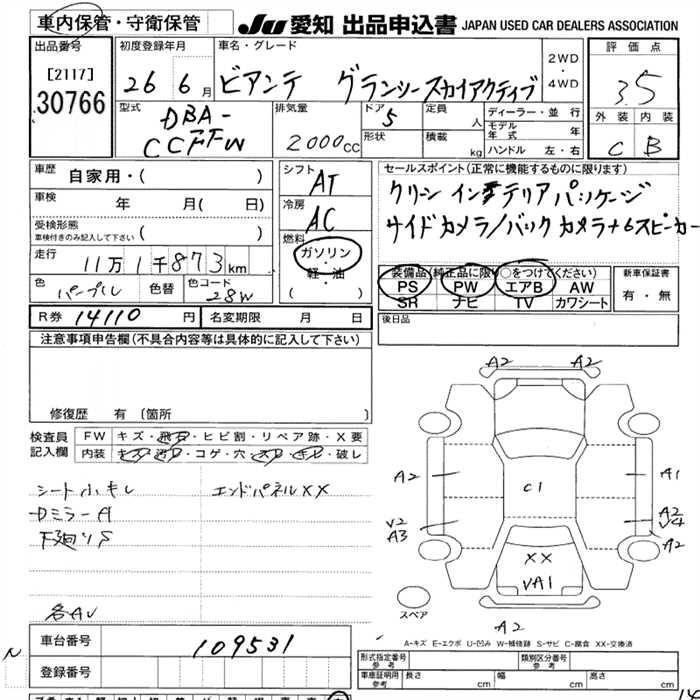 車内保管・守衛保管
JU 愛知 出品申込書 JAPAN USED CAR DEALERS ASSOCIATION
出品番号
[2117]
30766
初度登録年月
26 6月
車名・グレード
ビアンテ グランツースカイアクティブ
2WD
・
4WD
評価点
3.5
外装 内装
C B
型式
DBA-
CCFFW
排気量
2000cc
ドア
5
形状
定員
人
積載
kg
ディーラー・並行
モデル年式 年
ハンドル 左・右
車歴
自家用・( )
車検 年 月( 日)
受検形態
車検付きのみ記入して下さい ( )
走行
11万1千873km
色
パープル
色替
色コード
28W
シフト
AT
冷房
AC
燃料
ガソリン
・
軽・油
( )
セールスポイント(正常に機能するものに限ります)
クリーン インテリア パッケージ
サイドカメラ/バックカメラ+6スピーカー
装備品(純正品に限り○をつけてください)
PS PW エアB AW
SR ナビ TV カワシート
新車保証書
有・無
後日品
R券 14110円
名変期限 月 日
注意事項申告欄(不具合内容等は具体的に記入して下さい)
修復歴 有 〔箇所 〕
検査員記入欄
FW キズ・飛石・ヒビ割・リペア跡・X要
内装 キズ・汚レ・コゲ・穴・スレ・キレ・破レ
エンドパネルXX
Dミラー A
下廻りS
各AU
A2 A2
A2 A1
C1
V2
A3
A2
V4
A2
XX
VA1
A2
スペア
A-キズ E-エクボ U-凹み W-補修跡 S-サビ C-腐食 XX-交換済
N
車台番号 109531
登録番号
形式指定番号 参考
類別区分番号 参考
車庫証明用 参考
長さ cm 幅 cm 高さ cm